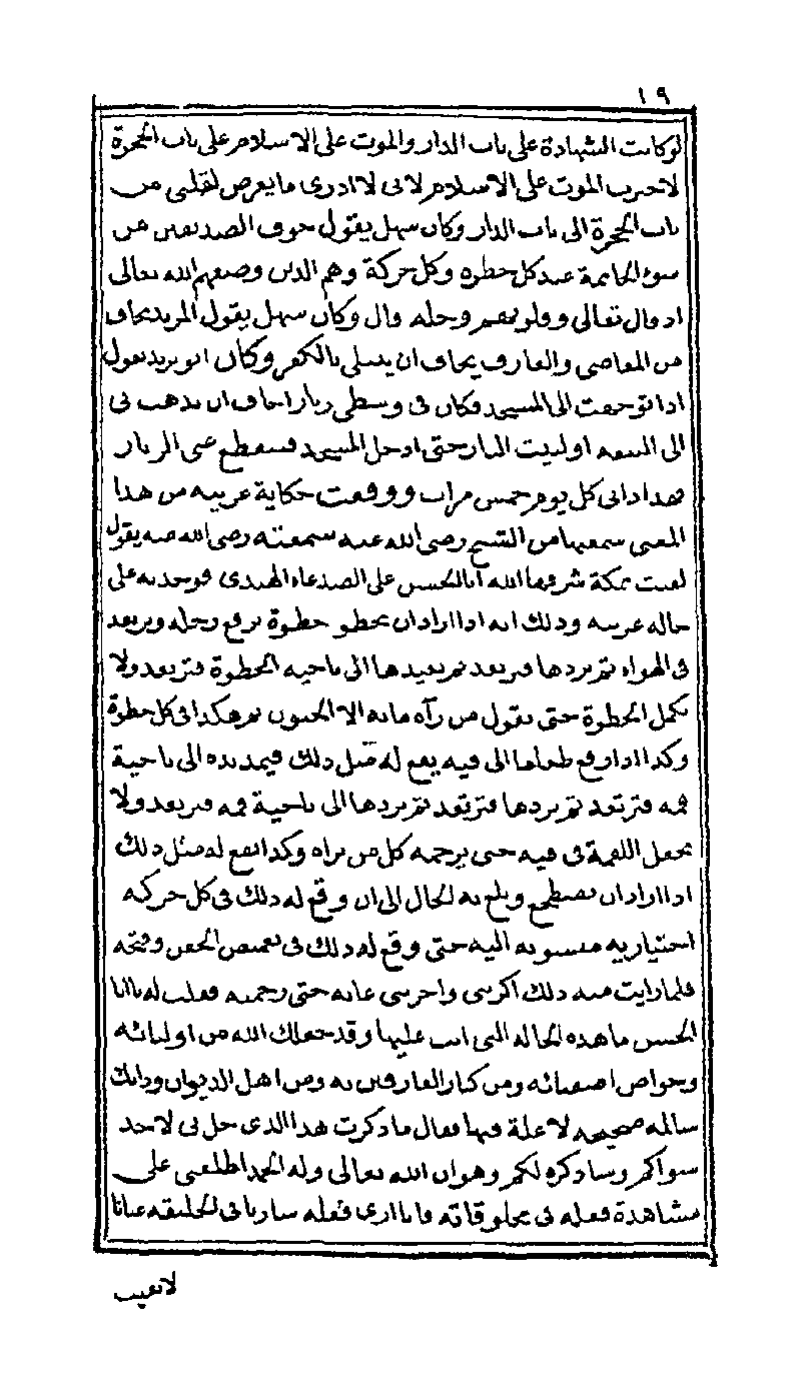 ١٩
لو كانت الشهادة على باب الدار والموت على الاسلام على باب الحجرة
لاخترت الموت على الاسلام لاني لا ادرى ما يعرض لقلبي من
باب الحجرة الى باب الدار وكان سهل يقول خوف الصديقين من
سوء الخاتمة عند كل خطوة وكل حركة وهم الذين وصفهم الله تعالى
اذ قال تعالى وقلوبهم وجلة قال وكان سهل يقول المريد يخاف
من المعاصي والعارف يخاف ان يبتلى بالكفر وكان ابو يزيد يقول
اذا توجهت الى المسجد فكان في وسطي زنارا اخاف ان يذهب بي
الى البيعة او لبيت النار حتى ادخل المسجد فينقطع عنى الزنار
فهذا دابى كل يوم خمس مرات ووقعت حكاية غريبة من هذا
المعنى سمعتها من الشيخ رضى الله عنه سمعته رضى الله عنه يقول
لقيت بمكة شرفها الله ابا الحسن على الصدغاء الهندى فوجدته على
حالة غريبة وذلك انه اذا اراد ان يخطو خطوة يرفع رجله ويرتعد
في الهواء ثم يردها فيرتعد ثم يعيدها الى ناحية الخطوة فترتعد ولا
تكمل الخطوة حتى يقول من رآه ما به الا الجنون ثم هكذا في كل خطوة
وكذا اذا رفع طعاما الى فيه يقع له مثل ذلك فيمد يده الى ناحية
فمه فترتعد ثم يردها فترتعد ثم يردها الى ناحية فمه فترتعد ولا
يجعل اللقمة في فيه حتى يرحمه كل من يراه وكذا يقع له مثل ذلك
اذا اراد ان يضطجع وبلغ به الحال الى ان وقع له ذلك في كل حركة
اختيارية منسوبة اليه حتى وقع له ذلك في تغميض الجفن وفتحه
فلما رايت منه ذلك اكربنى واحزننى شانه حتى رحمته فقلت له يا ابا
الحسن ما هذه الحالة التى انت عليها وقد جعلك الله من اوليائه
وخواص اصفيائه ومن كبار العارفين به ومن اهل الديوان وذاتك
سالمة صحيحة لا علة فيها فقال ما ذكرت هذا الذى حل بى لاحد
سواكم وساذكره لكم وهو ان الله تعالى وله الحمد اطلعنى على
مشاهدة فعله في مخلوقاته فانا ارى فعله ساريا في الخليقة عيانا
لا يغيب